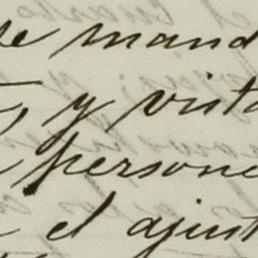 se mand
y vista
persona
el ajust